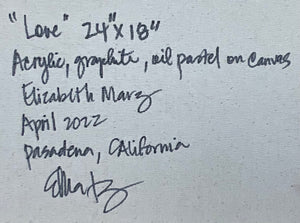 "Love" 24"x 18"
Acrylic, graphite, oil pastel on canvas
Elizabeth Marz
April 2022
Pasadena, California